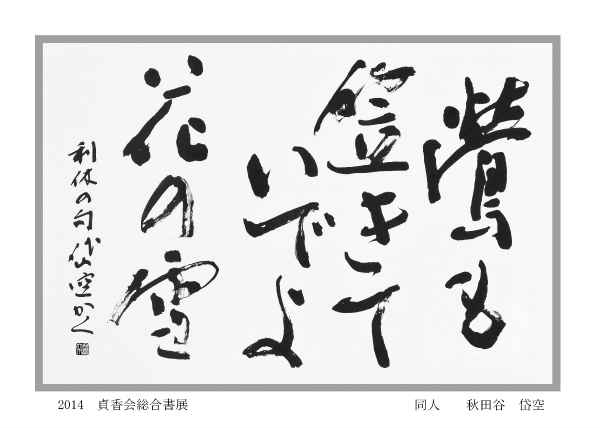 鶯も
笠きて
いでよ
花の雪
利休の句 岱空かく
2014 貞香会総合書展
同人 秋田谷 岱空